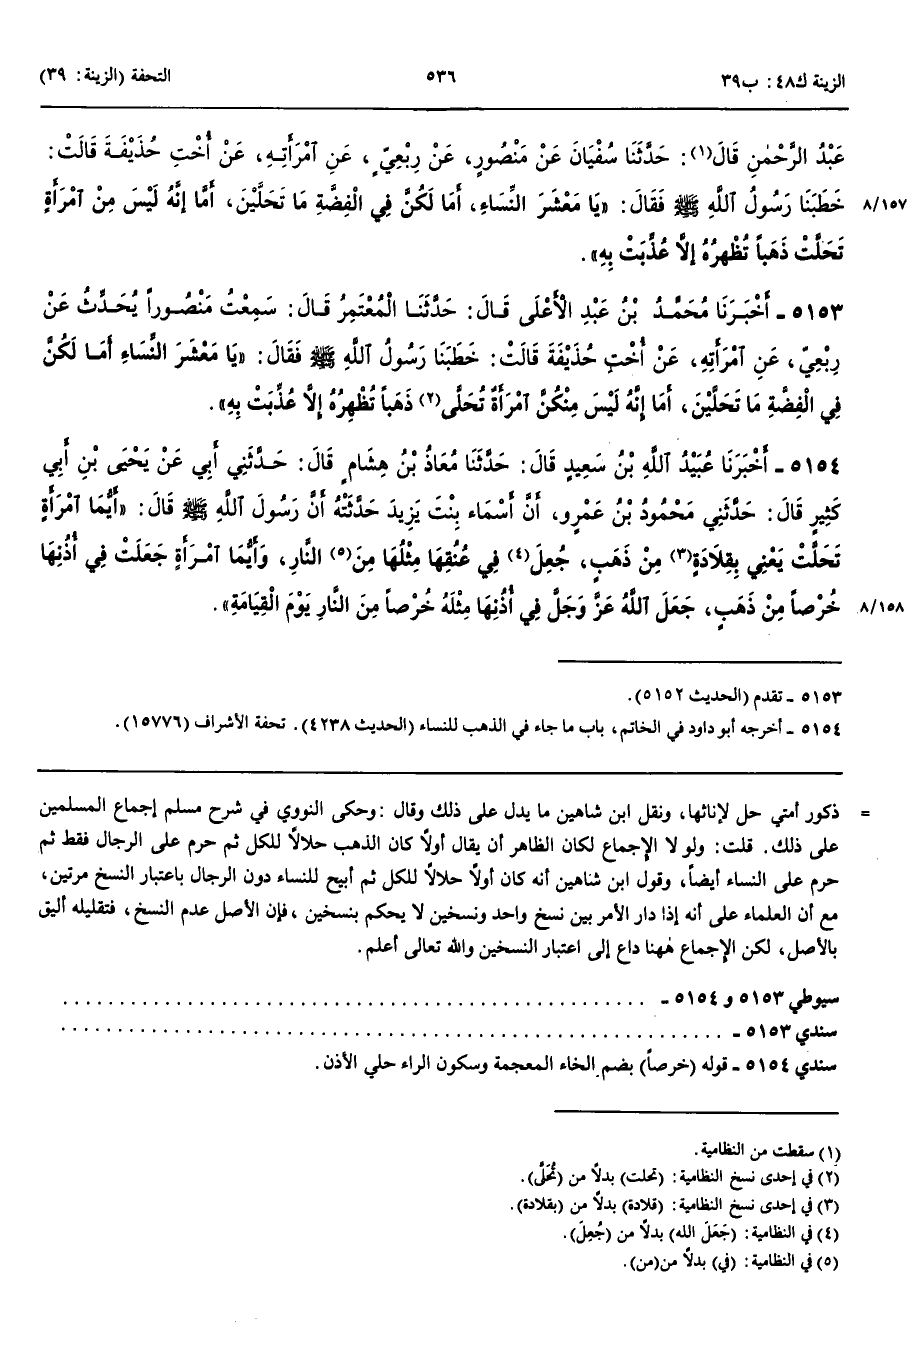 الزينة ك٤٨: ب٣٩ ٥٣٦ التحفة (الزينة: ٣٩)
عَبْدُ الرَّحْمٰنِ قَالَ(١): حَدَّثَنَا سُفْيَانَ عَنْ مَنْصُورٍ، عَنْ رِبْعِيٍّ، عَنِ ٱمْرَأَتِهِ، عَنْ أُخْتِ حُذَيْفَةَ قَالَتْ:
٨/١٥٧ خَطَبَنَا رَسُولُ ٱللَّهِ ﷺ فَقَالَ: «يَا مَعْشَرَ النِّسَاءِ، أَمَا لَكُنَّ فِي الْفِضَّةِ مَا تَحَلَّيْنَ، أَمَّا إِنَّهُ لَيْسَ مِنْ ٱمْرَأَةٍ
تَحَلَّتْ ذَهَباً تُظْهِرُهُ إِلاَّ عُذِّبَتْ بِهِ».
٥١٥٣ ـ أَخْبَرَنَا مُحَمَّدُ بْنُ عَبْدِ الْأَعْلَى قَالَ: حَدَّثَنَا الْمُعْتَمِرُ قَالَ: سَمِعْتُ مَنْصُوراً يُحَدِّثُ عَنْ
رِبْعِيٍّ، عَنِ ٱمْرَأَتِهِ، عَنْ أُخْتِ حُذَيْفَةَ قَالَتْ: خَطَبَنَا رَسُولُ ٱللَّهِ ﷺ فَقَالَ: «يَا مَعْشَرَ النِّسَاءِ أَمَا لَكُنَّ
فِي الْفِضَّةِ مَا تَحَلَّيْنَ، أَمَا إِنَّهُ لَيْسَ مِنْكُنَّ ٱمْرَأَةٌ تُحَلَّى(٢) ذَهَباً تُظْهِرُهُ إِلاَّ عُذِّبَتْ بِهِ».
٥١٥٤ ـ أَخْبَرَنَا عُبَيْدُ ٱللَّهِ بْنُ سَعِيدٍ قَالَ: حَدَّثَنَا مُعَاذُ بْنُ هِشَامٍ قَالَ: حَدَّثَنِي أَبِي عَنْ يَحْيَى بْنِ أَبِي
كَثِيرٍ قَالَ: حَدَّثَنِي مَحْمُودُ بْنُ عَمْرٍو، أَنَّ أَسْمَاءَ بِنْتَ يَزِيدَ حَدَّثَتْهُ أَنَّ رَسُولَ ٱللَّهِ ﷺ قَالَ: «أَيُّمَا ٱمْرَأَةٍ
تَحَلَّتْ يَعْنِي بِقِلاَدَةٍ(٣) مِنْ ذَهَبٍ، جُعِلَ(٤) فِي عُنُقِهَا مِثْلُهَا مِنَ(٥) النَّارِ، وَأَيُّمَا ٱمْرَأَةٍ جَعَلَتْ فِي أُذُنِهَا
٨/١٥٨ خُرْصاً مِنْ ذَهَبٍ، جَعَلَ ٱللَّهُ عَزَّ وَجَلَّ فِي أُذُنِهَا مِثْلَهُ خُرْصاً مِنَ النَّارِ يَوْمَ الْقِيَامَةِ».
٥١٥٣ ـ تقدم (الحديث ٥١٥٢).
٥١٥٤ ـ أخرجه أبو داود في الخاتم، باب ما جاء في الذهب للنساء (الحديث ٤٢٣٨). تحفة الأشراف (١٥٧٧٦).
= ذكور أمتي حل لإناثها، ونقل ابن شاهين ما يدل على ذلك وقال :وحكى النووي في شرح مسلم إجماع المسلمين
على ذلك. قلت: ولو لا الإجماع لكان الظاهر أن يقال أولاً كان الذهب حلالاً للكل ثم حرم على الرجال فقط ثم
حرم على النساء أيضاً، وقول ابن شاهين أنه كان أولاً حلالاً للكل ثم أبيح للنساء دون الرجال باعتبار النسخ مرتين،
مع أن العلماء على أنه إذا دار الأمر بين نسخ واحد ونسخين لا يحكم بنسخين ،فإن الأصل عدم النسخ، فتقليله أليق
بالأصل، لكن الإجماع ههنا داع إلى اعتبار النسخين والله تعالى أعلم.
سيوطي ٥١٥٣ و ٥١٥٤ ـ ..................................................
سندي ٥١٥٣ ـ ..........................................................
سندي ٥١٥٤ ـ قوله (خرصاً) بضم الخاء المعجمة وسكون الراء حلي الأذن.
(١) سقطت من النظامية.
(٢) في إحدى نسخ النظامية: (تحلت) بدلاً من (تُحَلَّى).
(٣) في إحدى نسخ النظامية: (قلادة) بدلاً من (بقلادة).
(٤) في النظامية: (جَعَلَ الله) بدلاً من (جُعِلَ).
(٥) في النظامية: (في) بدلاً من(من).